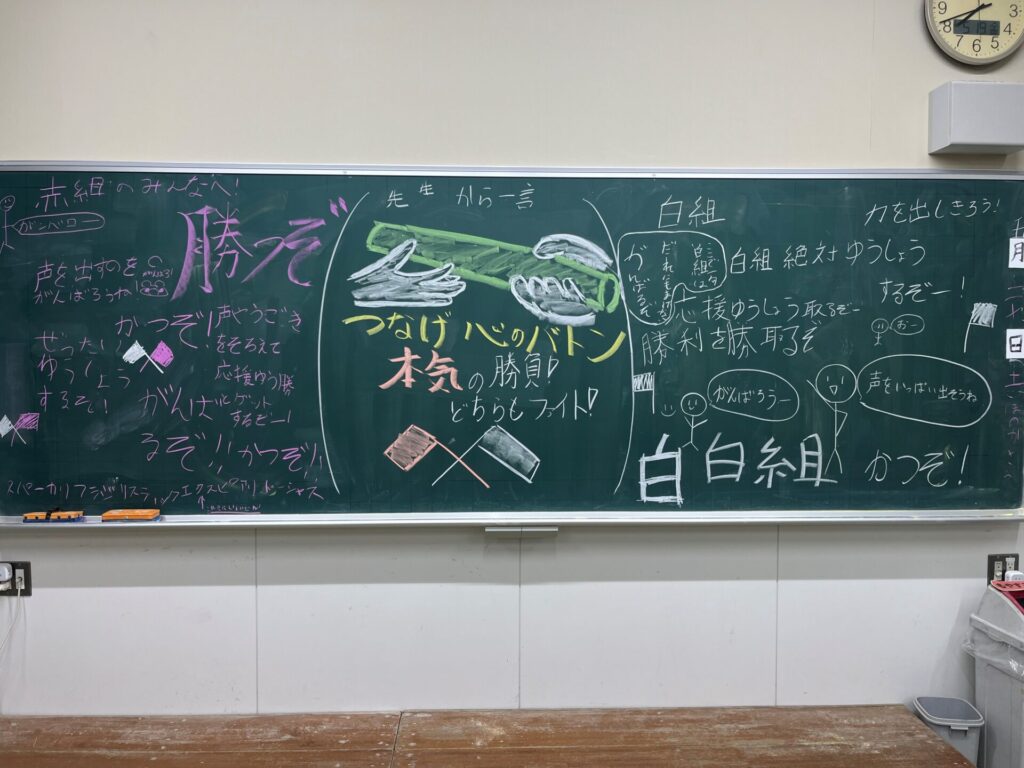 赤組のみんなへ!
ガンバロー
勝つぞ
声を出すのを
がんばろうね
かつぞ!
声やうごき
をそろえて
応援ゆう勝
ゲット
するぞー!
ぜったい
ゆうしょう
するぞ!
がんば
るぞ!!
かつぞ!!
先生から一言
つなげ 心のバトン
本気の勝負!
どちらもファイト!
白組
力を出しきろう!
がんばるぞ
白組は
白組 絶対ゆうしょう
するぞー!
応援ゆうしょう取るぞー
勝利を勝取るぞ
おー
がんばろうー
声をいっぱい出そうね
白 白組
かつぞ!
9
8
7
6
5
4
3